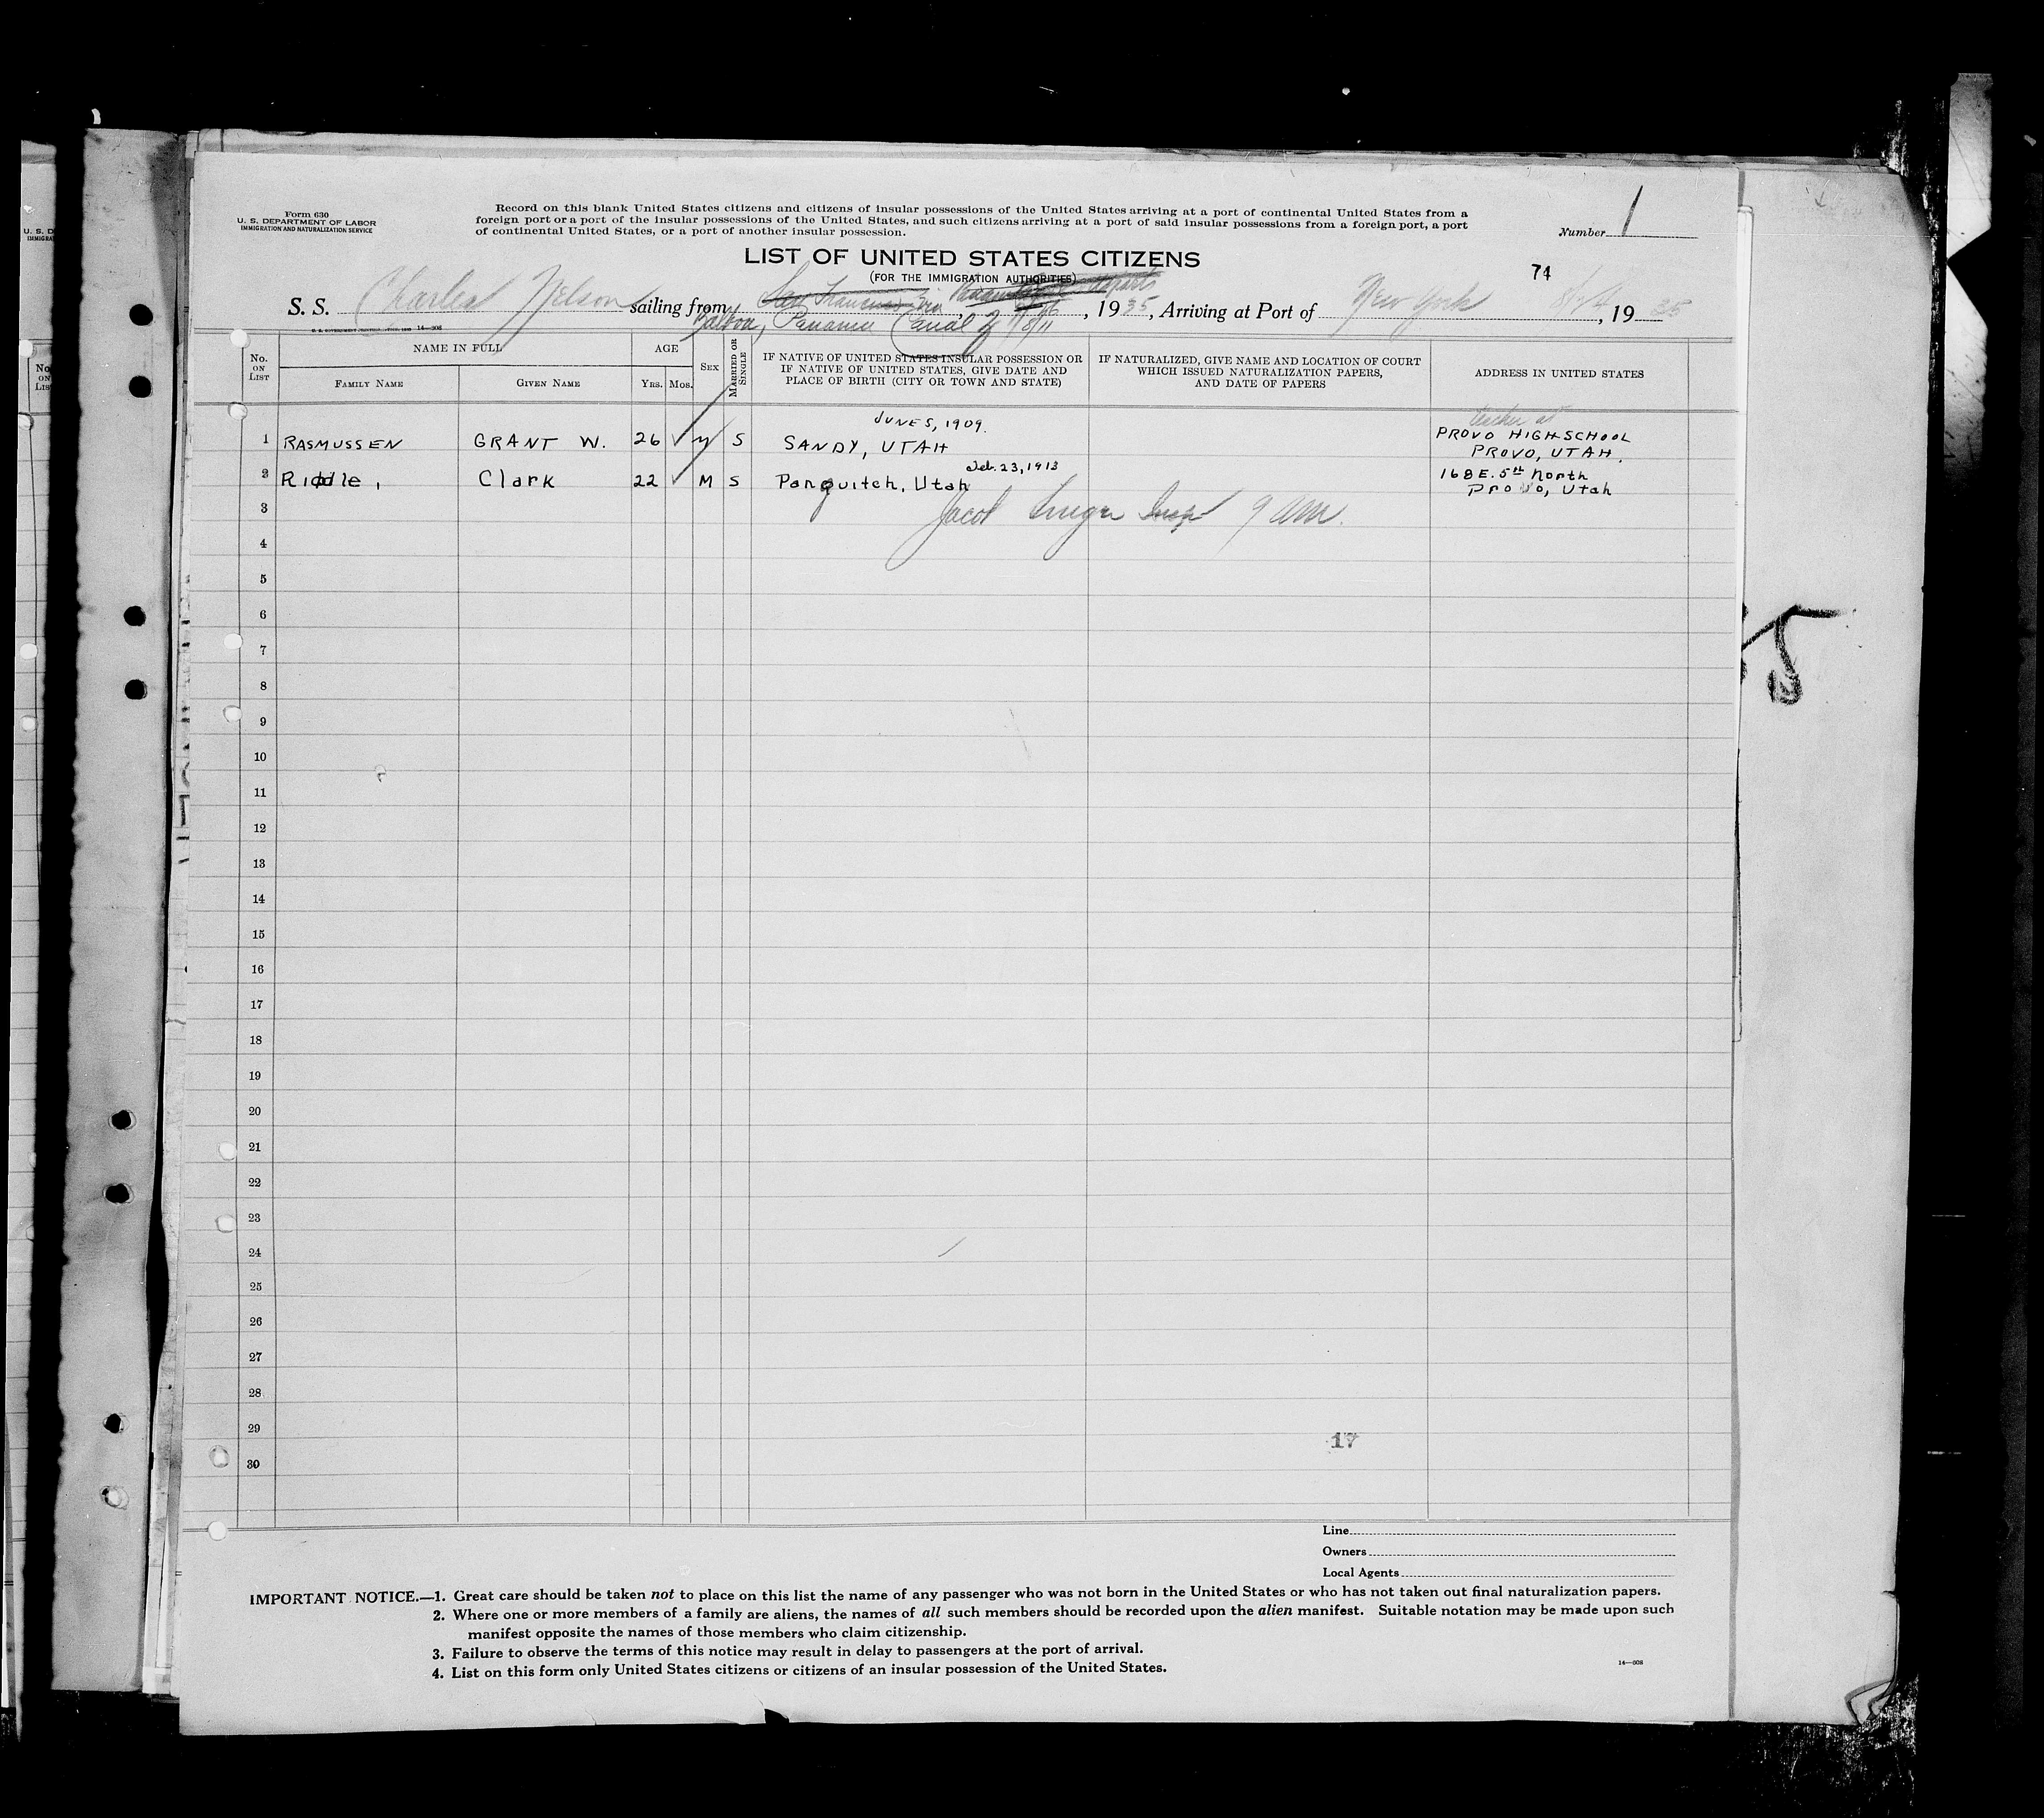 Form 630
U. S. DEPARTMENT OF LABOR
IMMIGRATION AND NATURALIZATION SERVICE
Record on this blank United States citizens and citizens of insular possessions of the United States arriving at a port of continental United States from a
foreign port or a port of the insular possessions of the United States, and such citizens arriving at a port of said insular possessions from a foreign port, a port
of continental United States, or a port of another insular possession.
Number 1
LIST OF UNITED STATES CITIZENS
(FOR THE IMMIGRATION AUTHORITIES)
74
S. S. Charles Nelson sailing from San Francisco via , 1935, Arriving at Port of New York 8/ , 1935
Balboa, Panama Canal Z
14—608
No. ON LIST
NAME IN FULL
FAMILY NAME
GIVEN NAME
AGE
YRS. MOS.
SEX
MARRIED OR SINGLE
IF NATIVE OF UNITED STATES INSULAR POSSESSION OR
IF NATIVE OF UNITED STATES, GIVE DATE AND
PLACE OF BIRTH (CITY OR TOWN AND STATE)
IF NATURALIZED, GIVE NAME AND LOCATION OF COURT
WHICH ISSUED NATURALIZATION PAPERS,
AND DATE OF PAPERS
ADDRESS IN UNITED STATES
JUNE 5, 1909.
teacher at
1 RASMUSSEN GRANT W. 26 ✓ M S SANDY, UTAH PROVO HIGH SCHOOL
PROVO, UTAH.
Feb. 23, 1913
2 Riddle, Clark 22 ✓ M S Panguitch, Utah 168 E. 5th North
Provo, Utah
3 Jacob Insp 9 AM.
4
5
6
7
8
9
10
11
12
13
14
15
16
17
18
19
20
21
22
23
24
25
26
27
28
29
17
30
Line
Owners
Local Agents
IMPORTANT NOTICE.—1. Great care should be taken not to place on this list the name of any passenger who was not born in the United States or who has not taken out final naturalization papers.
2. Where one or more members of a family are aliens, the names of all such members should be recorded upon the alien manifest. Suitable notation may be made upon such
manifest opposite the names of those members who claim citizenship.
3. Failure to observe the terms of this notice may result in delay to passengers at the port of arrival.
4. List on this form only United States citizens or citizens of an insular possession of the United States.
14—608